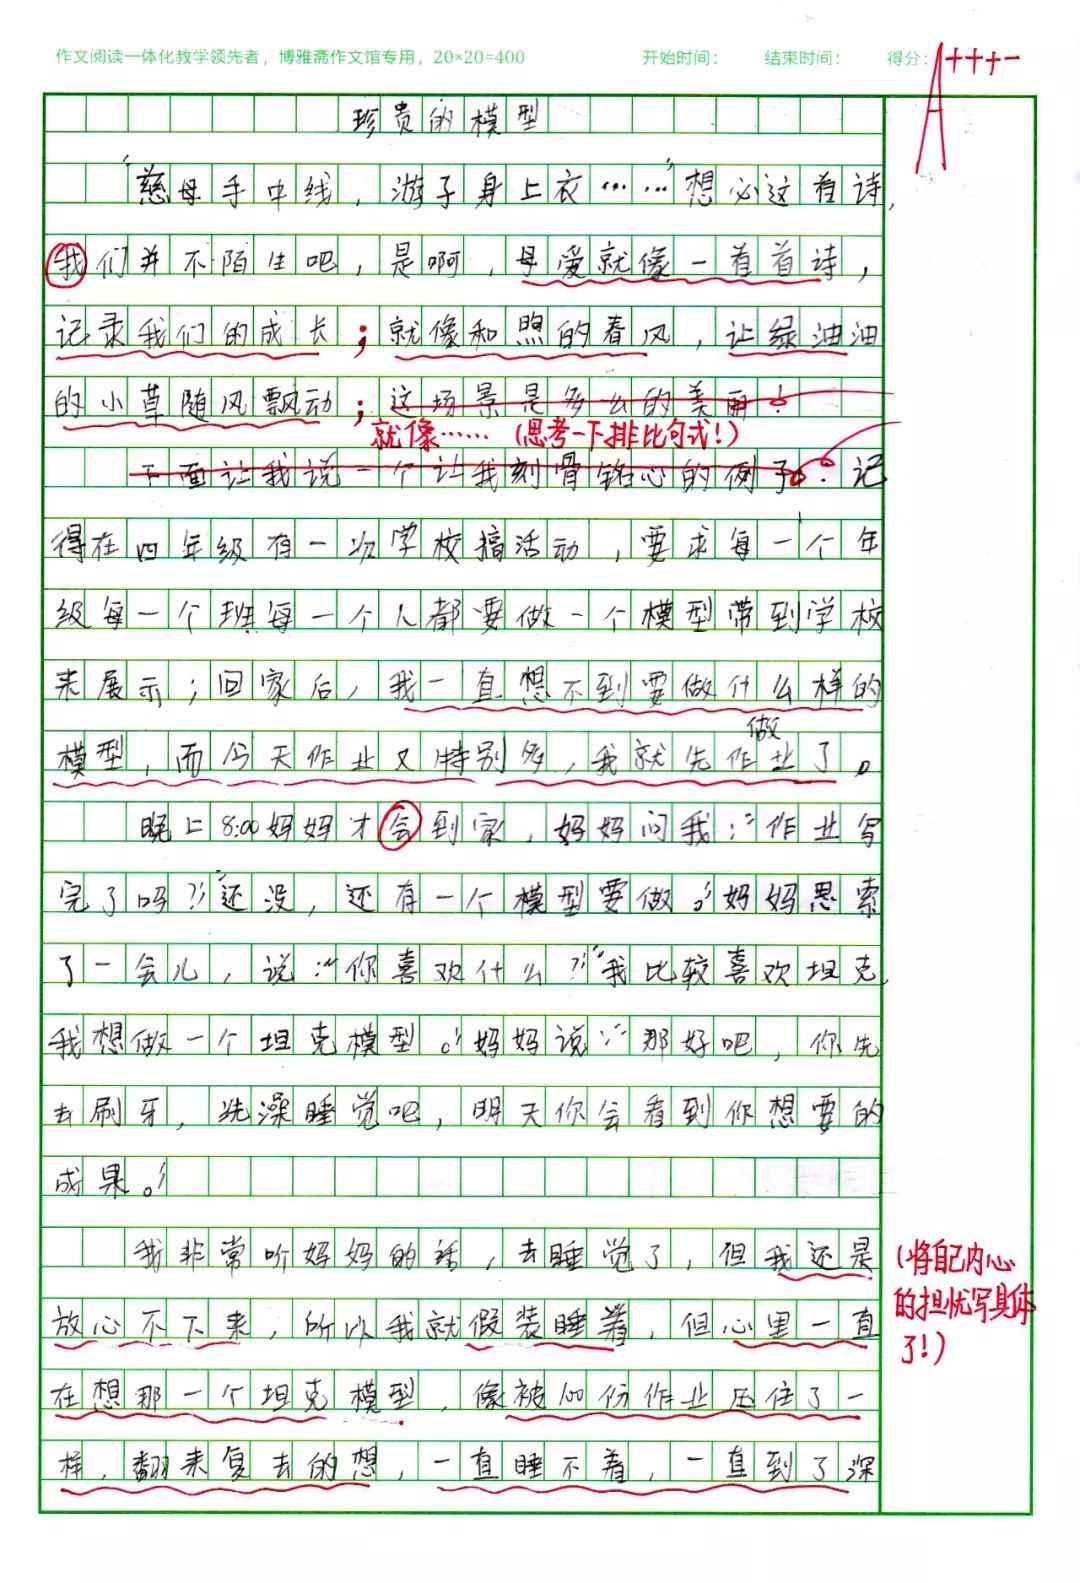 作文阅读一体化教学领先者，博雅斋作文馆专用，20×20=400 开始时间： 结束时间： 得分：A+++-
珍贵的模型
“慈母手中线，游子身上衣……”想必这首诗，
我们并不陌生吧，是啊，母爱就像一首首诗，
记录我们的成长；就像和煦的春风，让绿油油
的小草随风飘动；这场景是多么的美丽！
就像……（思考一下排比句式！）
下面让我说一个让我刻骨铭心的例子。记
得在四年级有一次学校搞活动，要求每一个年
级每一个班每一个人都要做一个模型带到学校
来展示；回家后，我一直想不到要做什么样的
做
模型，而今天作业又特别多，我就先作业了。
晚上8:00妈妈才会到家，妈妈问我：“作业写
完了吗？”“还没，还有一个模型要做。”妈妈思索
了一会儿，说：“你喜欢什么？”“我比较喜欢坦克，
我想做一个坦克模型。”妈妈说：“那好吧，你先
去刷牙，洗澡睡觉吧，明天你会看到你想要的
成果。”
我非常听妈妈的话，去睡觉了，但我还是
放心不下来，所以我就假装睡着，但心里一直
在想那一个坦克模型，像被100份作业压住了一
样，翻来复去的想，一直睡不着，一直到了深
（将自己内心
的担忧写具体
了！）